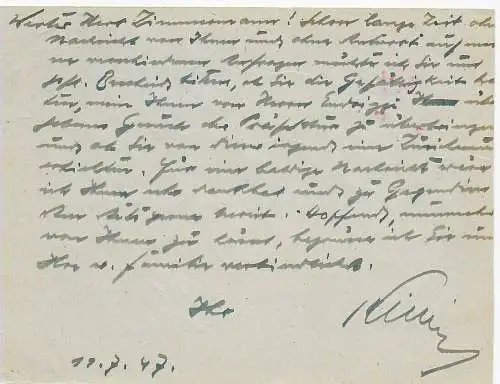 Werter Herr Zimmermann! Schon lange Zeit ohne
Nachricht von Ihnen und ohne Antwort auf mei
ne verschiedenen Anfragen möchte ich Sie um
gefl. Bescheid bitten, ob Sie die Gefälligkeit ha
ten, mein Ihnen von Herrn
Gesuch der Präfektur zu überbringen
und ob Sie von dieser irgend eine
erhielten. Für eine baldige Nachricht wäre
ich Ihnen sehr dankbar und zu Gegendiens
ten stets gerne bereit. Hoffend, nunmehr
von Ihnen zu hören, begrüsse ich Sie und
Ihre w. Familie verbindlichst.
Ihr
11.7.47.